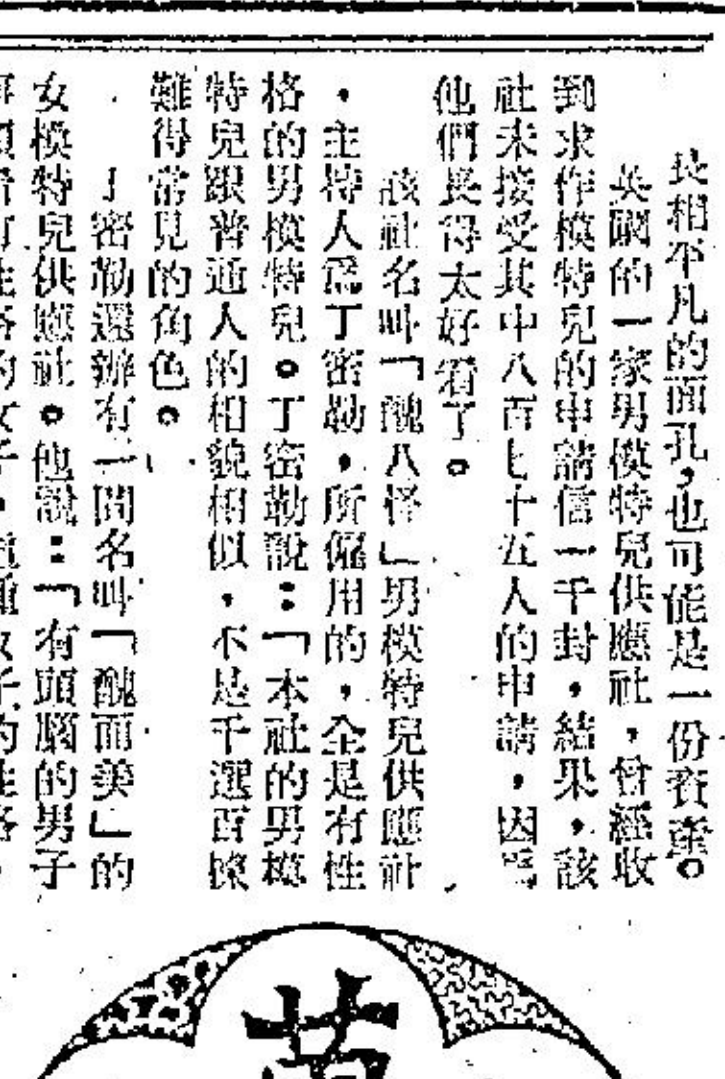 長相平凡的面孔,也可能是一份資產。
英國的一家男模特兒供應社,曾經收
到求作模特兒的申請信一千封,結果,該
社未接受其中八百七十五人的申請,因爲
他們長得太好看了。
該社名叫「醜八怪」男模特兒供應社
,主持人爲丁密勒,所僱用的,全是有性
格的男模特兒。丁密勒說:「本社的男模
特兒跟普通人的相貌相似,不是千選百揀
難得常見的角色。
丁密勒還辦有一間名叫「醜而美」的
女模特兒供應社。他說:「有頭腦的男子